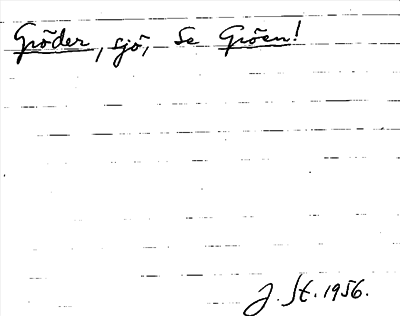 Gröder, sjö, Se Gröen!
J. St. 1956.